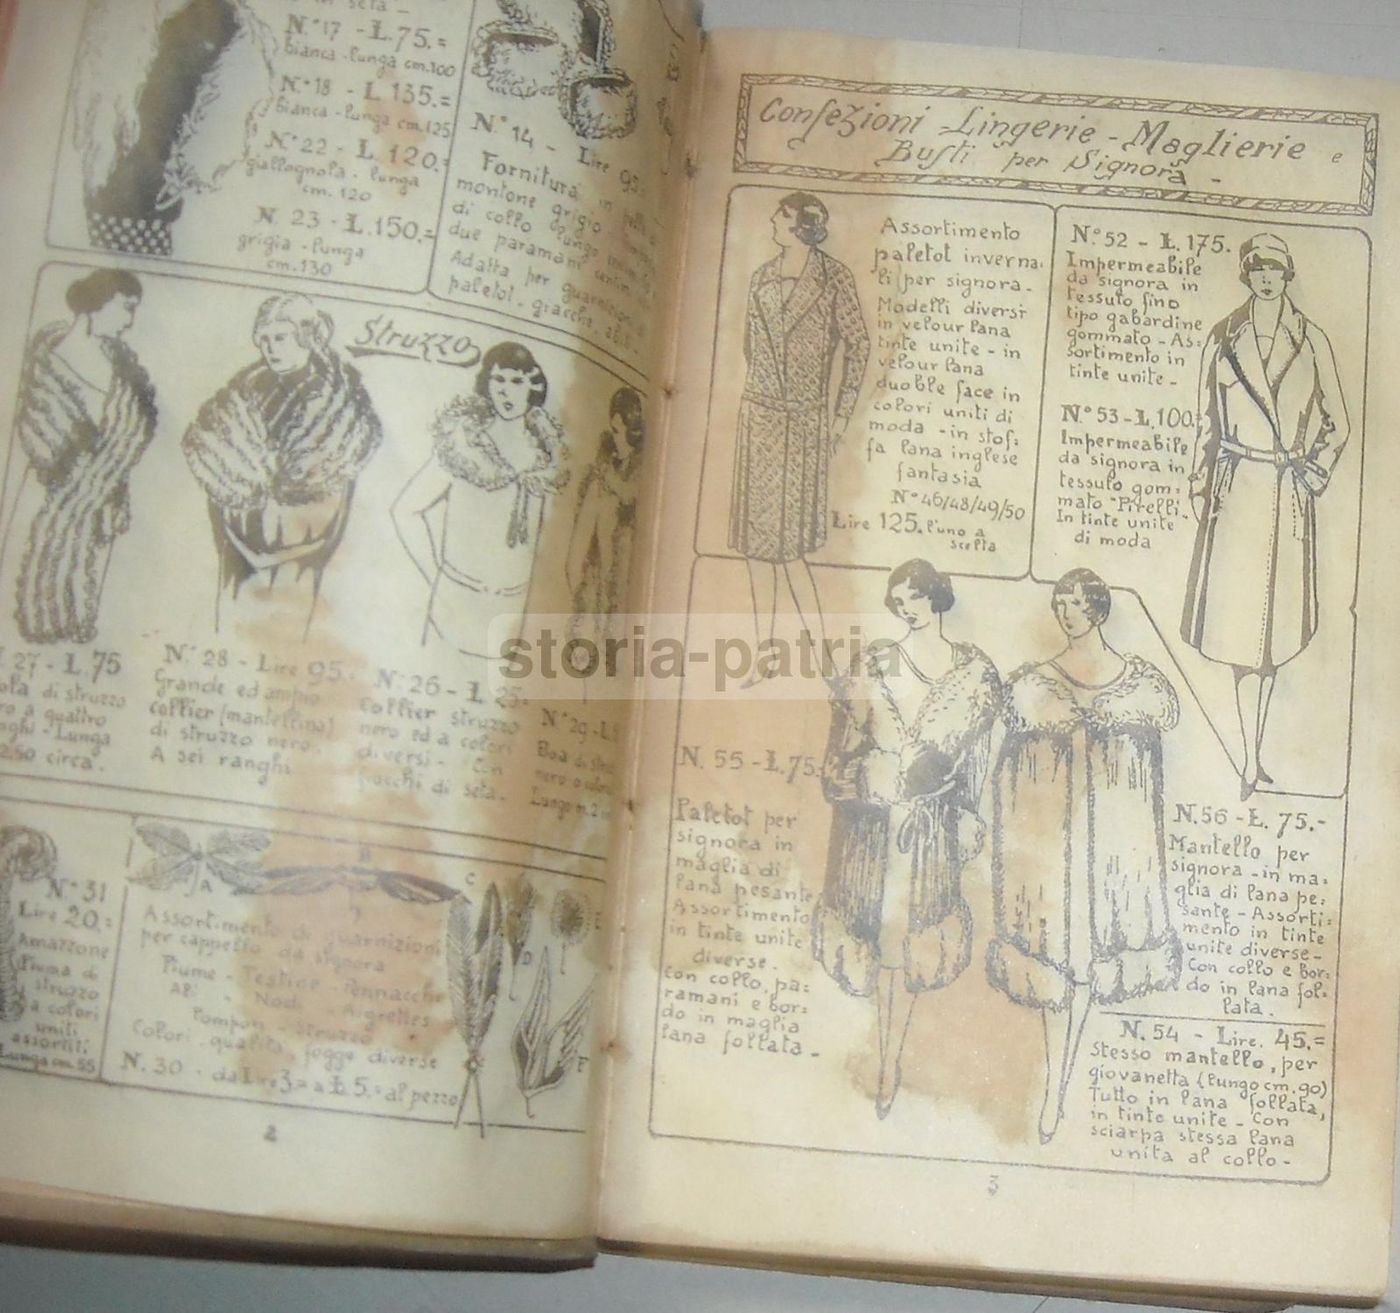 in seta -
N.° 17 - L. 75.=
bianca - lunga cm. 100
N.° 18 - L 135.=
bianca - lunga cm. 125
N.° 22 - L. 120.=
giallognola - lunga
cm. 120
N. 23 - L. 150.=
grigia - lunga
cm. 130
N.° 14 - Lire 95.
Fornitura in
montone grigio
di collo lungo
due paramani
Adatta per guarnizioni di
paletot - giacche, abiti -
Struzzo
27 - L. 75
di struzzo
a quattro
Lunga
2.50 circa.
N.° 28 - Lire 95.-
Grande ed ampio
collier (mantellina)
di struzzo nero.
A sei ranghi
N.° 26 - L 25.=
Collier struzzo
nero ed a colori
diversi - Con
fiocchi di seta.
N° 29 - L.
Boa di
nero o
Lungo m. 2
N.° 31
Lire 20.=
Amazzone
Piuma di
struzzo
a colori
uniti
assortiti.
Lunga cm. 55
A
B
C
D
E
F
Assortimento di guarnizioni
per cappello da signora
Piume - Testine - Pennacchi
Ali - Nodi - Aigrettes
Pompon - Struzzo
Colori - qualità, fogge diverse
N. 30 - da Lire 3= a L. 5.= al pezzo
2
Confezioni - Lingerie - Maglierie e
Busti per Signora -
Assortimento
paletot inverna=
li per signora -
Modelli diversi
in velour lana
tinte unite - in
velour lana
duoble face in
colori uniti di
moda - in stof=
fa lana inglese
fantasia
N° 46/48/49/50
Lire 125. l'uno a
scelta
N.° 52 - L. 175.
Impermeabile
da signora in
tessuto fino
tipo gabardine
gommato - As=
sortimento in
tinte unite -
N.° 53 - L. 100.=
Impermeabile
da signora in
tessuto gom=
mato "Pirelli"-
In tinte unite
di moda
N. 55 - L. 75.
Paletot per
signora in
maglia di
lana pesante
Assortimento
in tinte unite
diverse.
Con collo, pa=
ramani e bor=
do in maglia
lana follata -
N. 56 - L. 75.-
Mantello per
signora - in ma=
glia di lana pe=
sante - Assorti=
mento in tinte
unite diverse -
Con collo e bor=
do in lana fol=
lata.
N. 54 - Lire. 45.=
Stesso mantello, per
giovanetta (lungo cm. 90)
Tutto in lana follata,
in tinte unite - Con
sciarpa stessa lana
unita al collo -
3
storia-patria